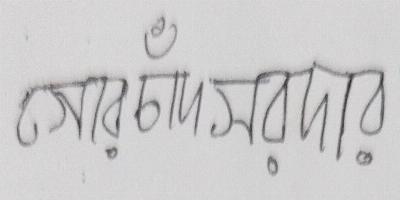 সোরচাঁদ সরদার